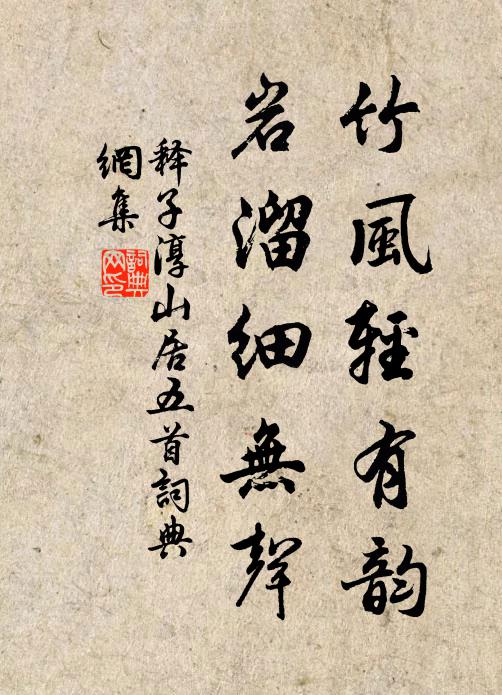 竹風輕有韵
岩溜細無聲
释子淳山居五首詞典
網集
詞典
网印